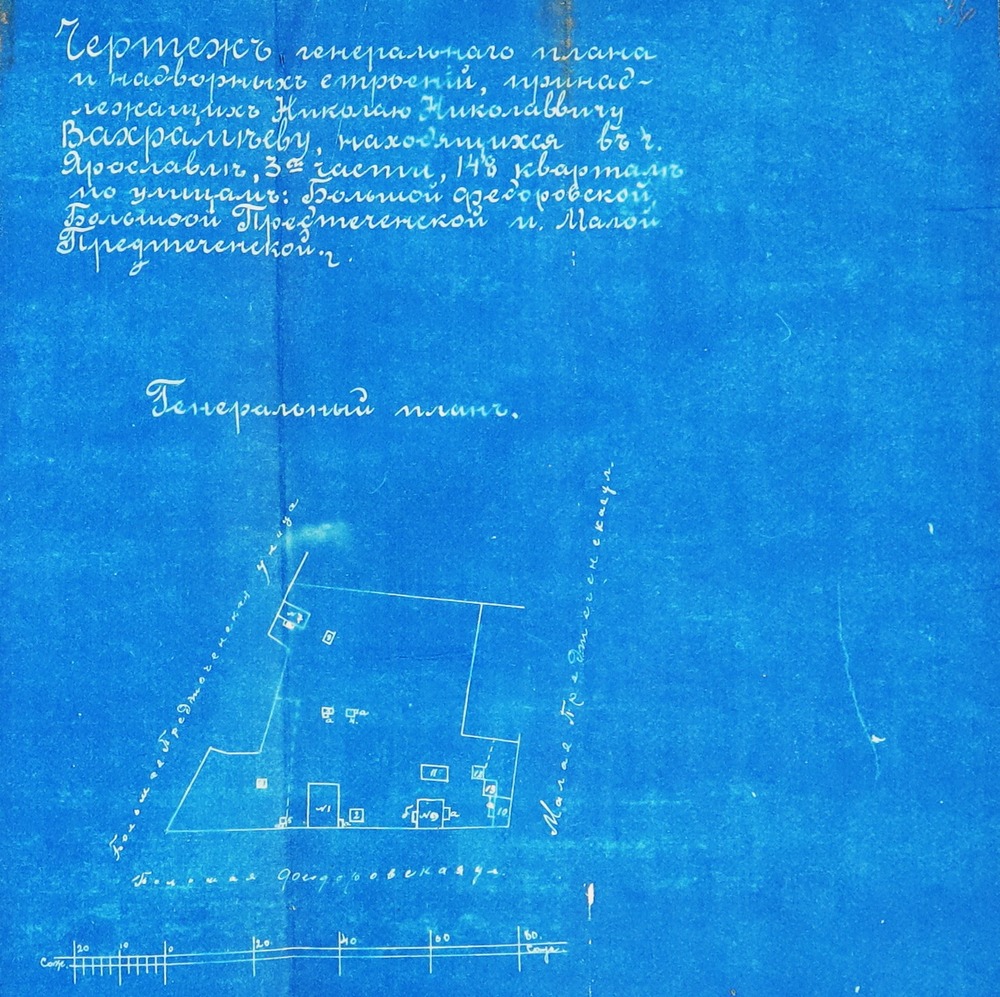 Чертежъ генеральнаго плана
и надворныхъ строений, принад-
лежащихъ Николаю Николаевичу
Вахрамѣеву, находящихся въ г.
Ярославлѣ, 3ей части, 148 кварталѣ
по улицамъ: Большой Федоровской,
Большоой Предтеченской и Малой
Предтеченской.
Генеральный планъ.
Большая Предтеченская улица
Малая Предтеченская ул.
№1
2
№9
а
б
11
12
13
10
Большая Федоровская ул.
20 10 0 20 40 60 80
Саж. Саж.